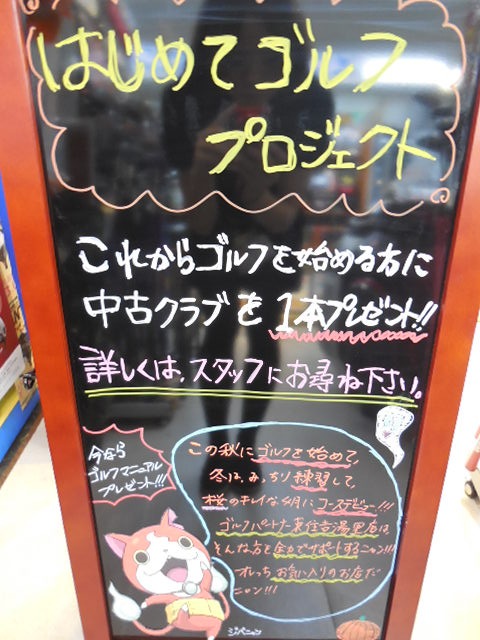 はじめてゴルフ
プロジェクト
これからゴルフを始める方に
中古クラブを1本プレゼント!!
詳しくは、スタッフにお尋ね下さい。
今なら
ゴルフマニュアル
プレゼント!!!
この秋にゴルフを始めて、
冬は、みっちり練習して
桜のキレイな4月にコースデビュー!!!
ゴルフパートナー東住吉湯里店は
そんな方を全力でサポートするニャン!!!
オレっちお気に入りのお店だ
ニャン!!!
ジバニャン